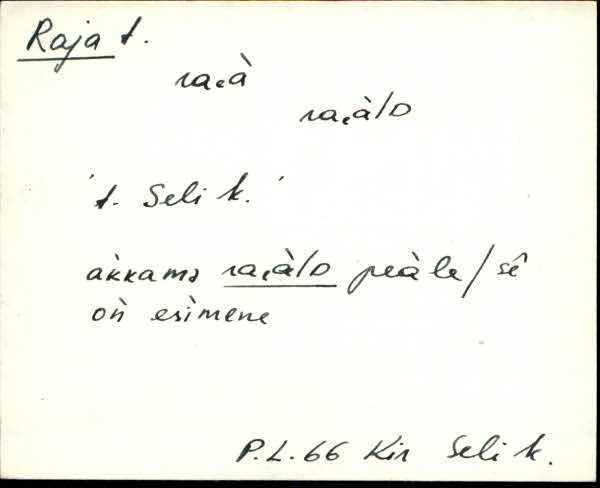 Raja t.
ra,à
ra,à/D
't. Seli k.'
aƙƙamə ra,à/D peàle/sê
oǹ esìmene
P.L.66 Kir Seli k.